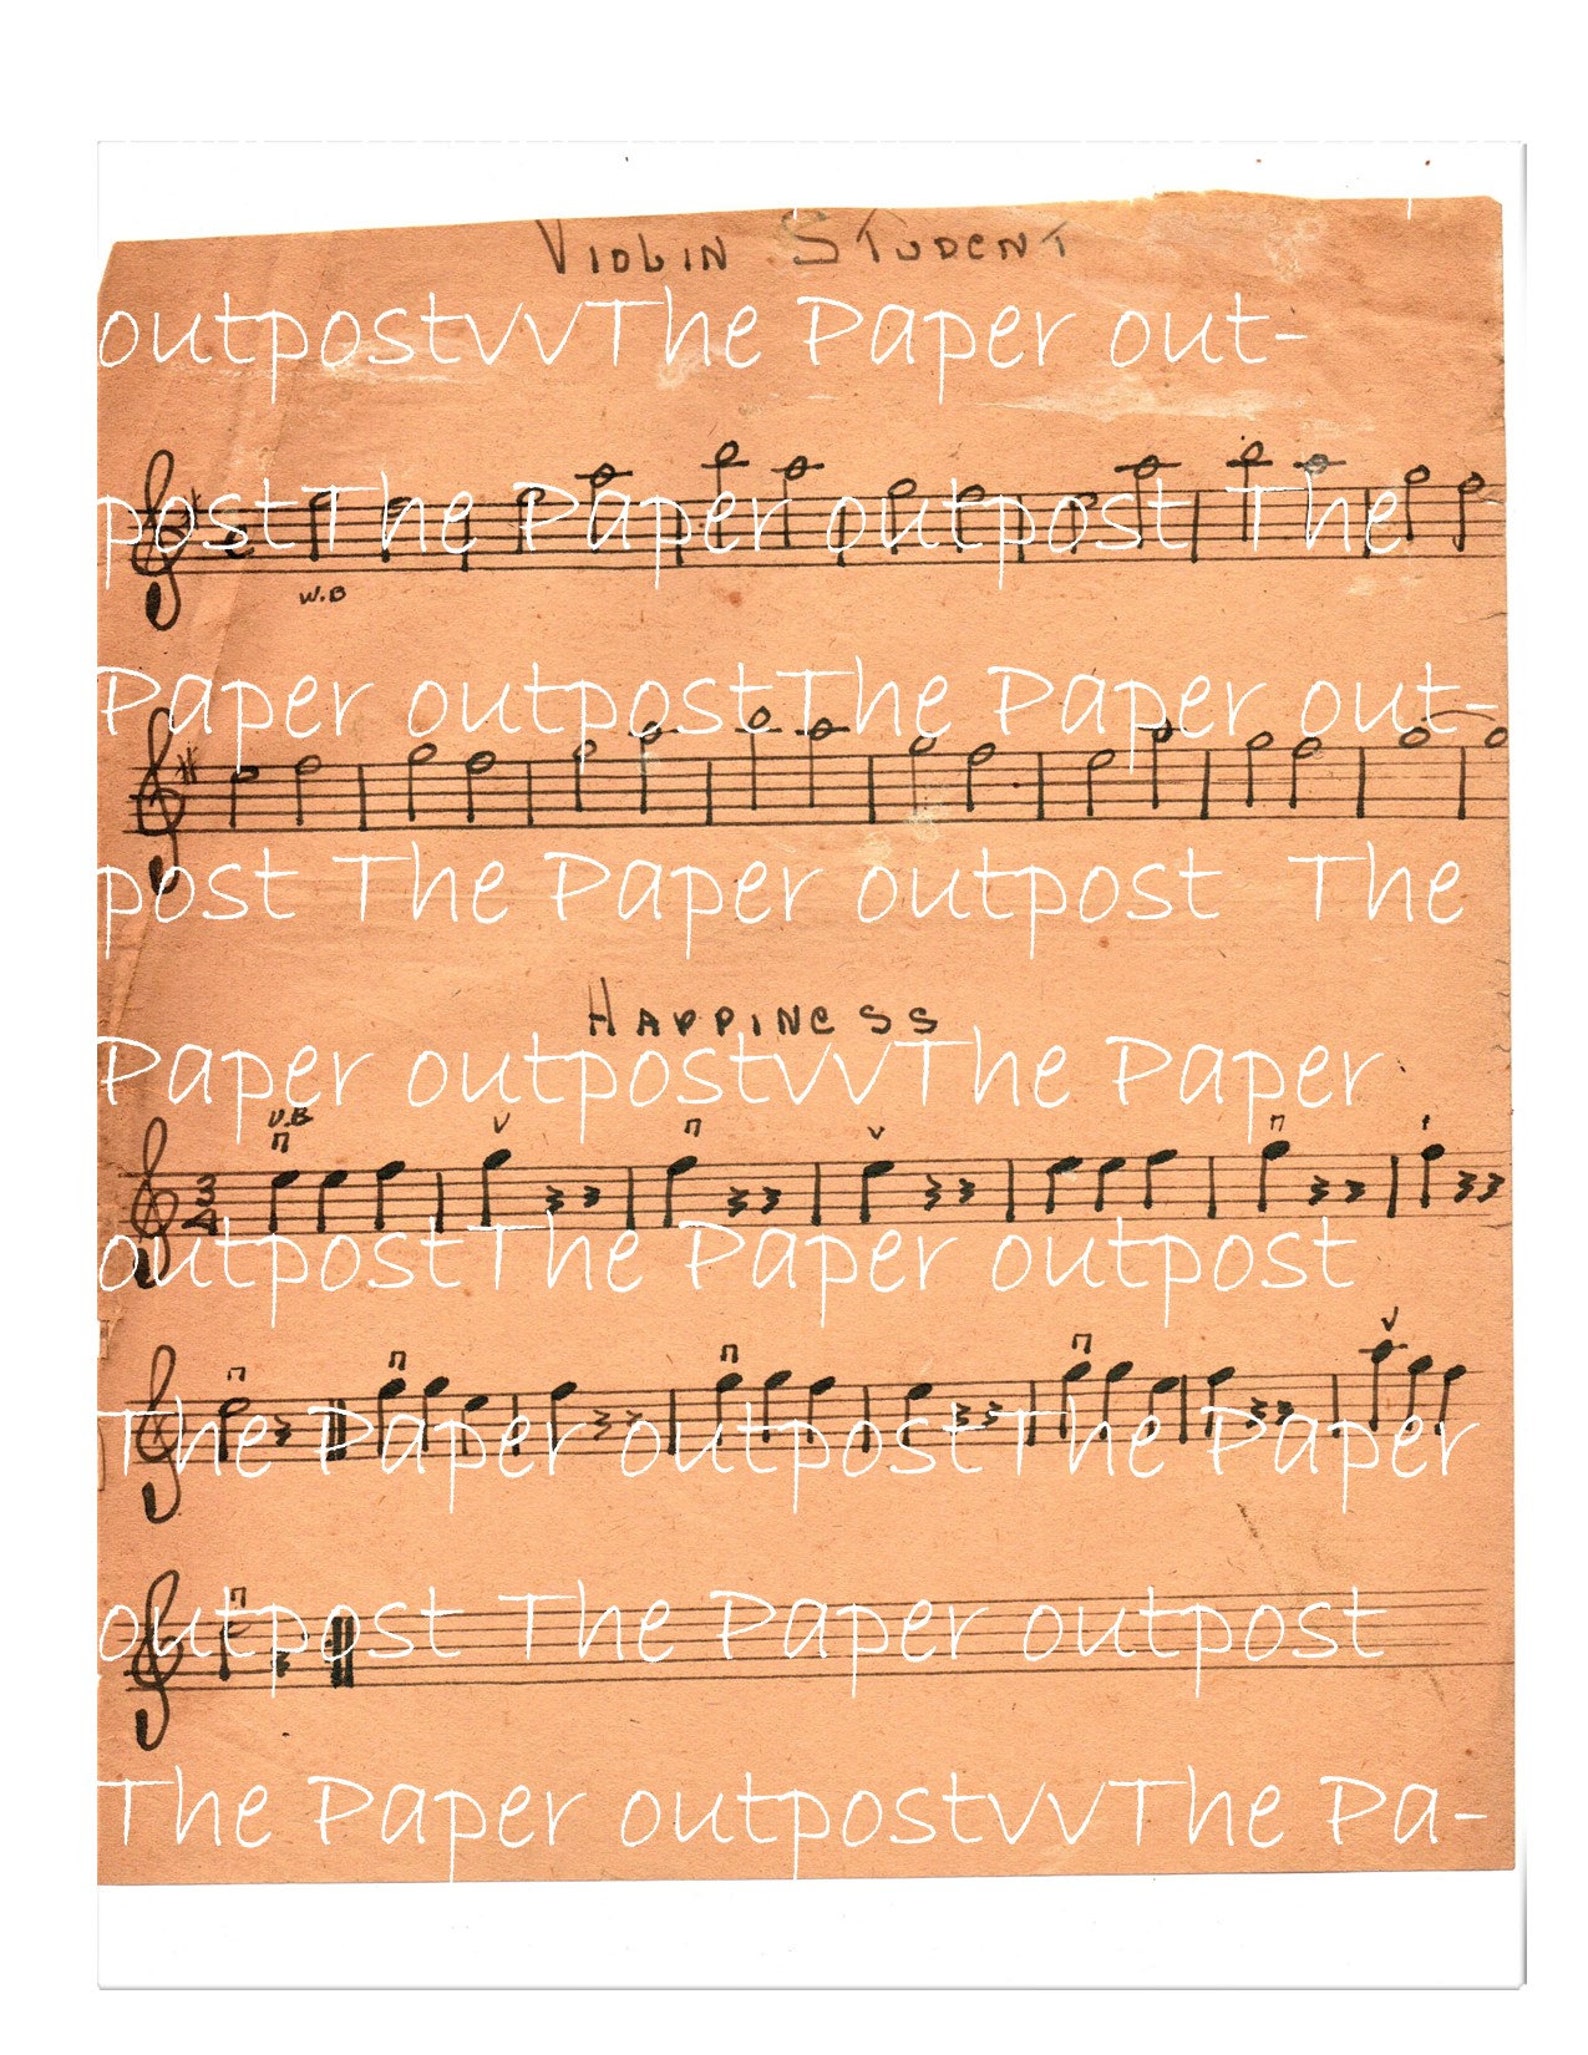 VIOLIN STUDENT
outpostvvThe Paper out-
postThe Paper outpost The
W.B
Paper outpostThe Paper out-
post The Paper outpost The
HAPPINESS
Paper outpostvvThe Paper
W.B
outpostThe Paper outpost
The Paper outpostThe Paper
outpost The Paper outpost
The Paper outpostvvThe Pa-